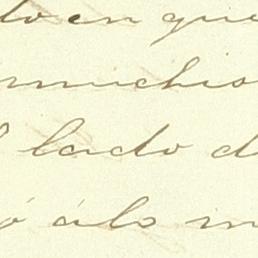 to en que
muchis
lado d
ó álo m